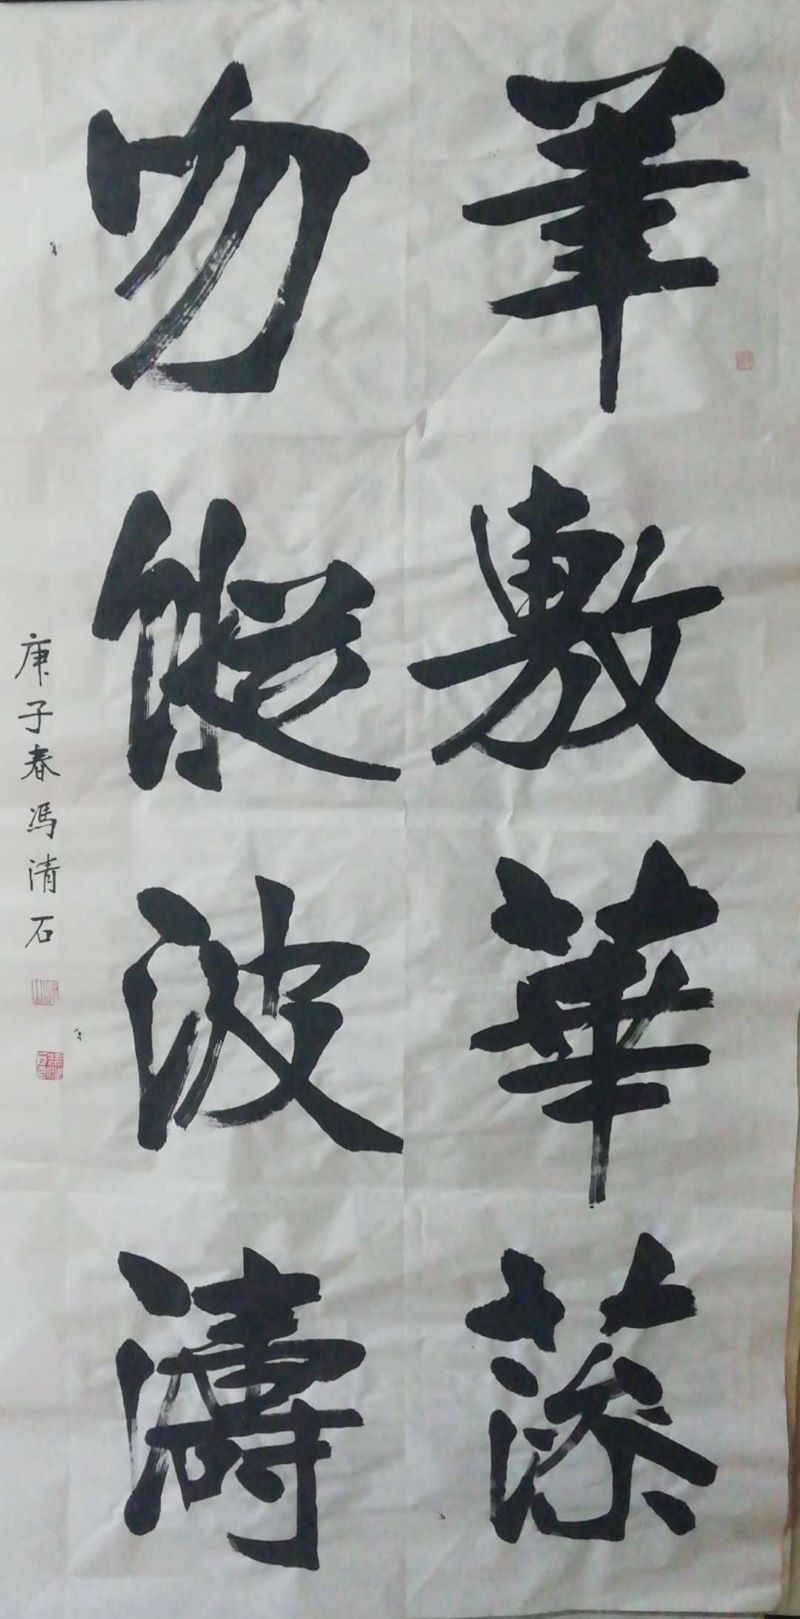 筆敷華藻
吻縱波濤
庚子春馮清石